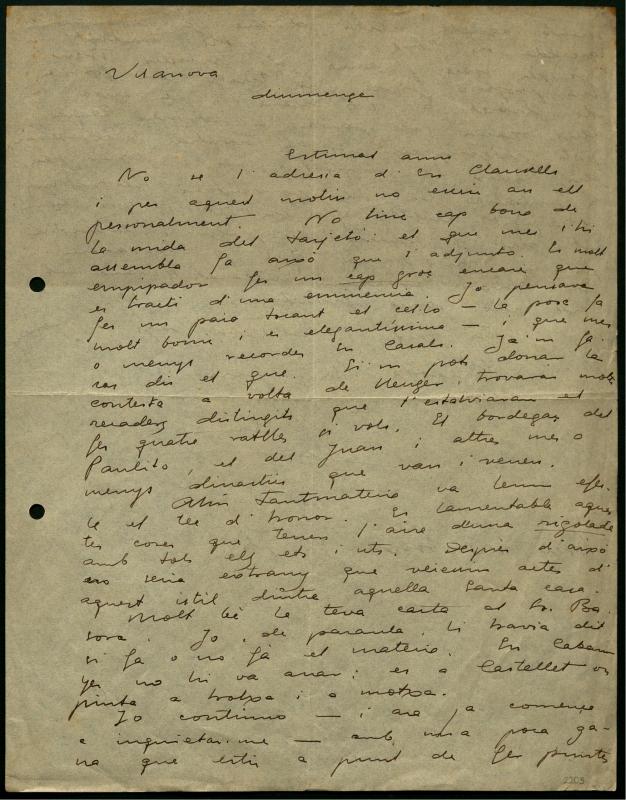 Vilanova
diumenge
Estimat amic
No sé l'adreça d'En Clausells
i per aquest motiu no escric an ell
personalment. No tinc cap bona de
la mida del tarjetó: el que mes s'hi
assembla ja això que t'adjunto. Es molt
empipador fer un cap gros encare que
es tracti d'una eminencia. Jo pensava
fer un paio tocant el cello — la pose ja
molt bonic i es elegantíssima — i que mes
o menys recordes En Casals. Ja m fa-
ras dir el que. Si m pots donar la
contesta a volta de
recaders distingits que t'estalviaran el
fer quatre ratlles si vols. El bordegas del
Paulito, el del Juan i altres mes o
menys que van i venen.
va tenir
le el tee d'honor. Es lamentable aques
tes coses que tenen l'aire d'una rigolade
amb tots els ets i uts. Després d'això
no seria estrany que veiessim actes d'
aquest istil dintre aquella santa casa.
Molt bé la teva carta al Sr. Ba
sora. Jo, de paraula, li havia dit
si fa o no fa el mateix. En Caban
yes no hi va anar: es a Castellet on
pinta a trotxa i a motxa.
Jo continuo — i ara ja començo
a inquietar-me — amb una poca ga-
na que estic a punt de fer puntes
2203